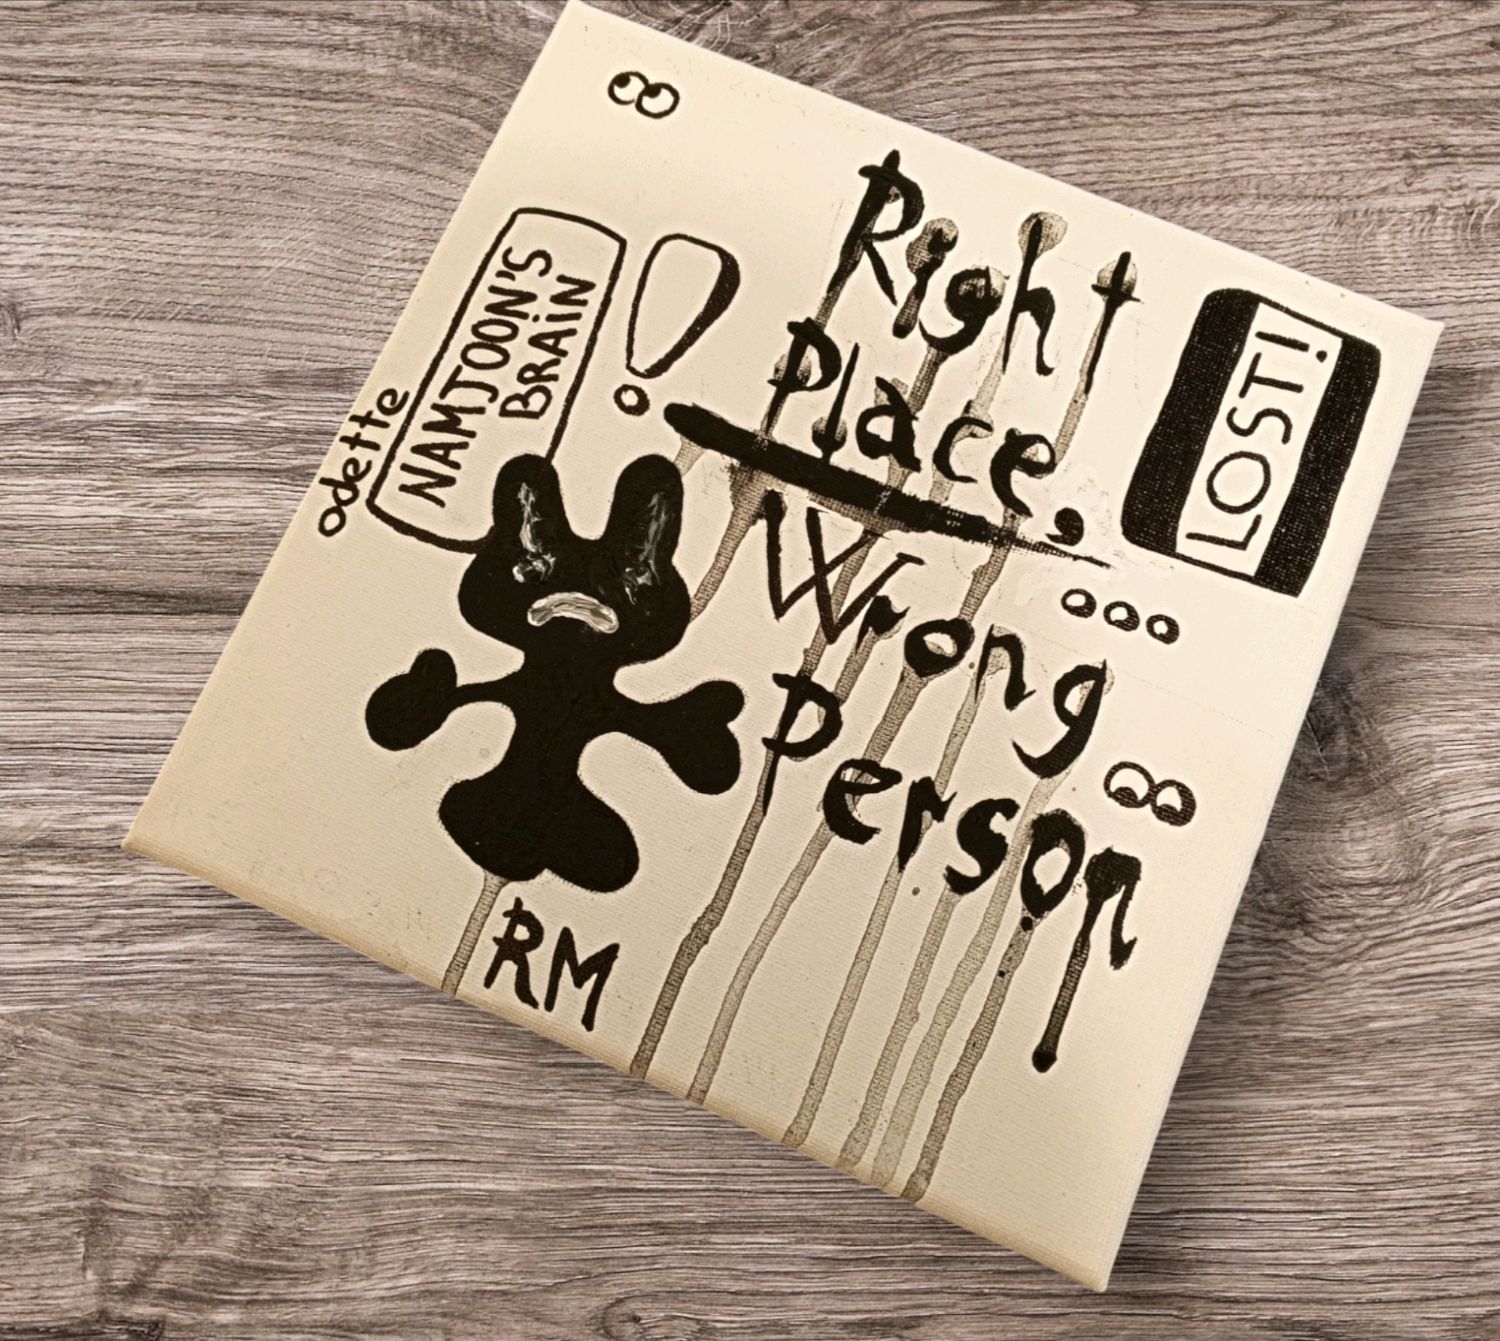 Right
Place,
Wrong
Person
LOST!
NAMJOON'S
BRAiN
!
odette
...
RM